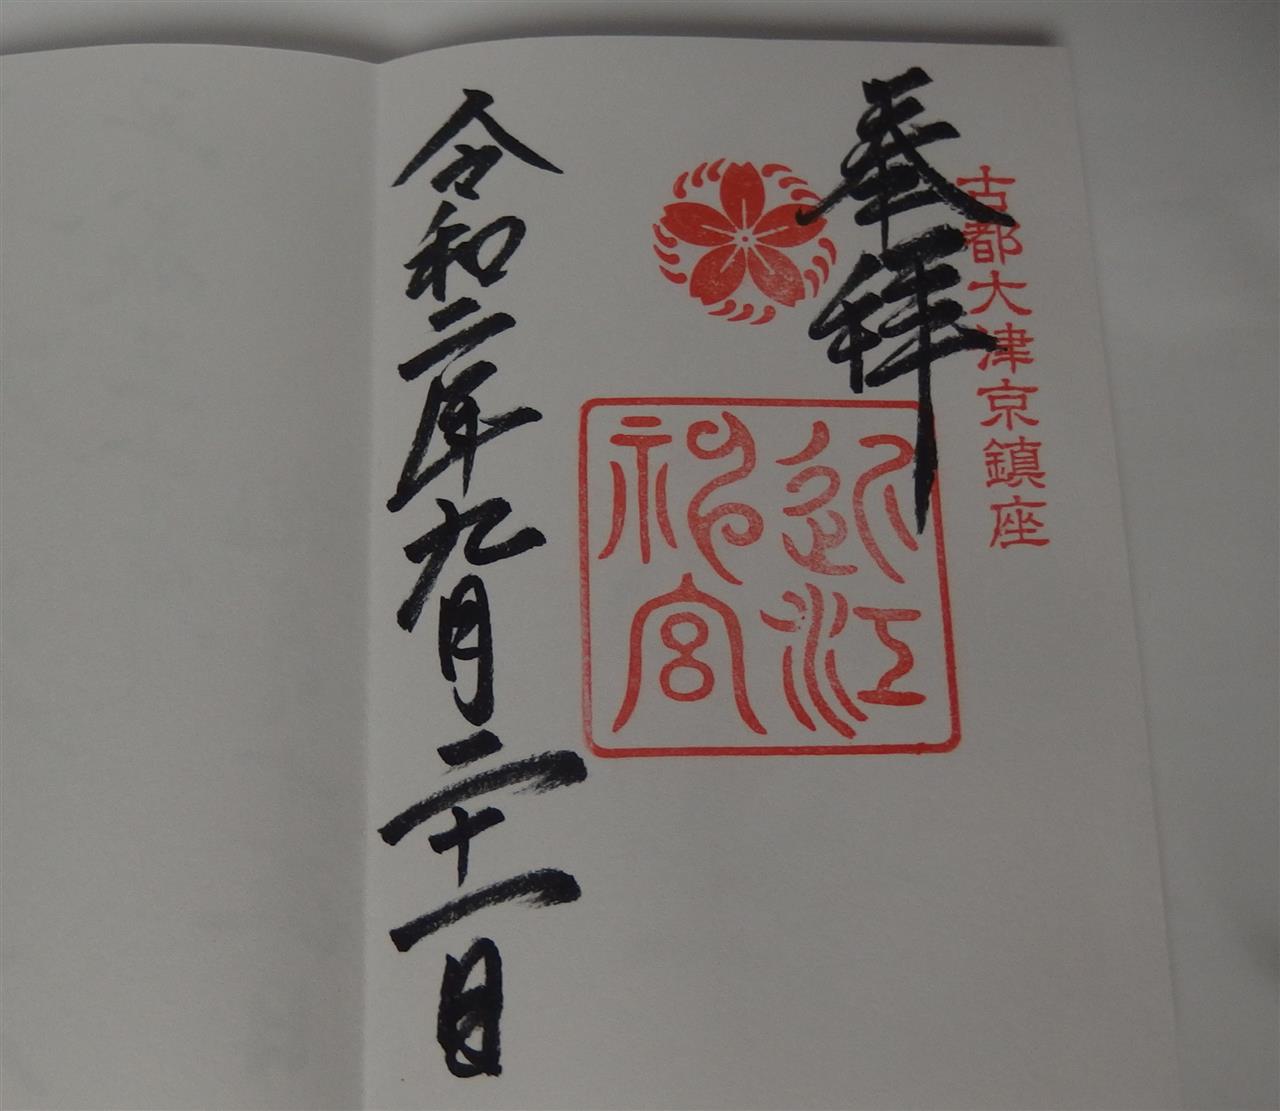 古都大津京鎮座
奉拝
近江
神宮
令和二年九月二十一日